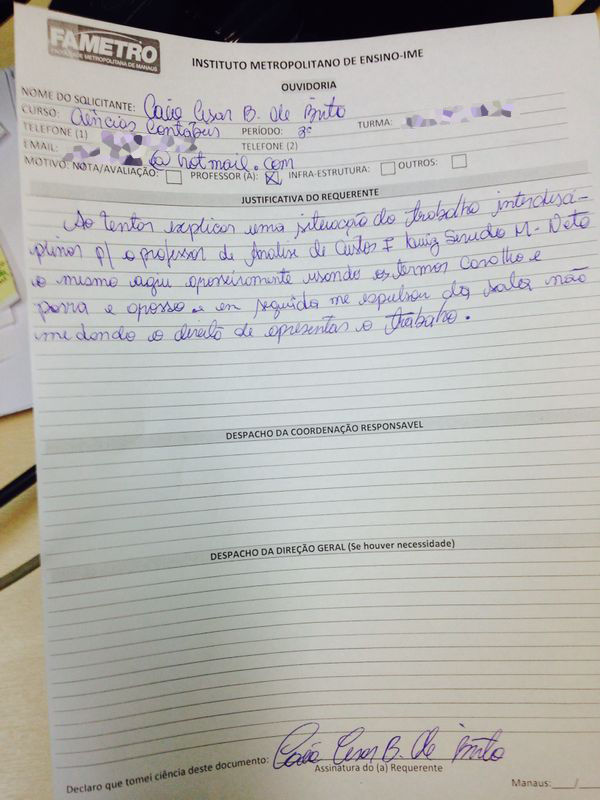 FAMETRO
FACULDADE METROPOLITANA DE MANAUS
INSTITUTO METROPOLITANO DE ENSINO-IME
OUVIDORIA
NOME DO SOLICITANTE: Caio Cesar B. de Brito
CURSO: Ciências Contábeis PERÍODO: 3º TURMA:
TELEFONE (1) TELEFONE (2)
EMAIL: @hotmail.com
MOTIVO: NOTA/AVALIAÇÃO: PROFESSOR (A): X INFRA-ESTRUTURA: OUTROS:
JUSTIFICATIVA DO REQUERENTE
Ao tentar explicar uma situação do trabalho interdisci-
plinar p/ o professor de Analise de Custos I Luiz M. Neto
o mesmo agiu usando os termos Caralho e
porra e em seguida me expulsou da sala não
me dando o direito de apresentar o trabalho.
DESPACHO DA COORDENAÇÃO RESPONSAVEL
DESPACHO DA DIREÇÃO GERAL (Se houver necessidade)
Declaro que tomei ciência deste documento: Caio Cesar B. de Brito
Assinatura do (a) Requerente
Manaus:___/